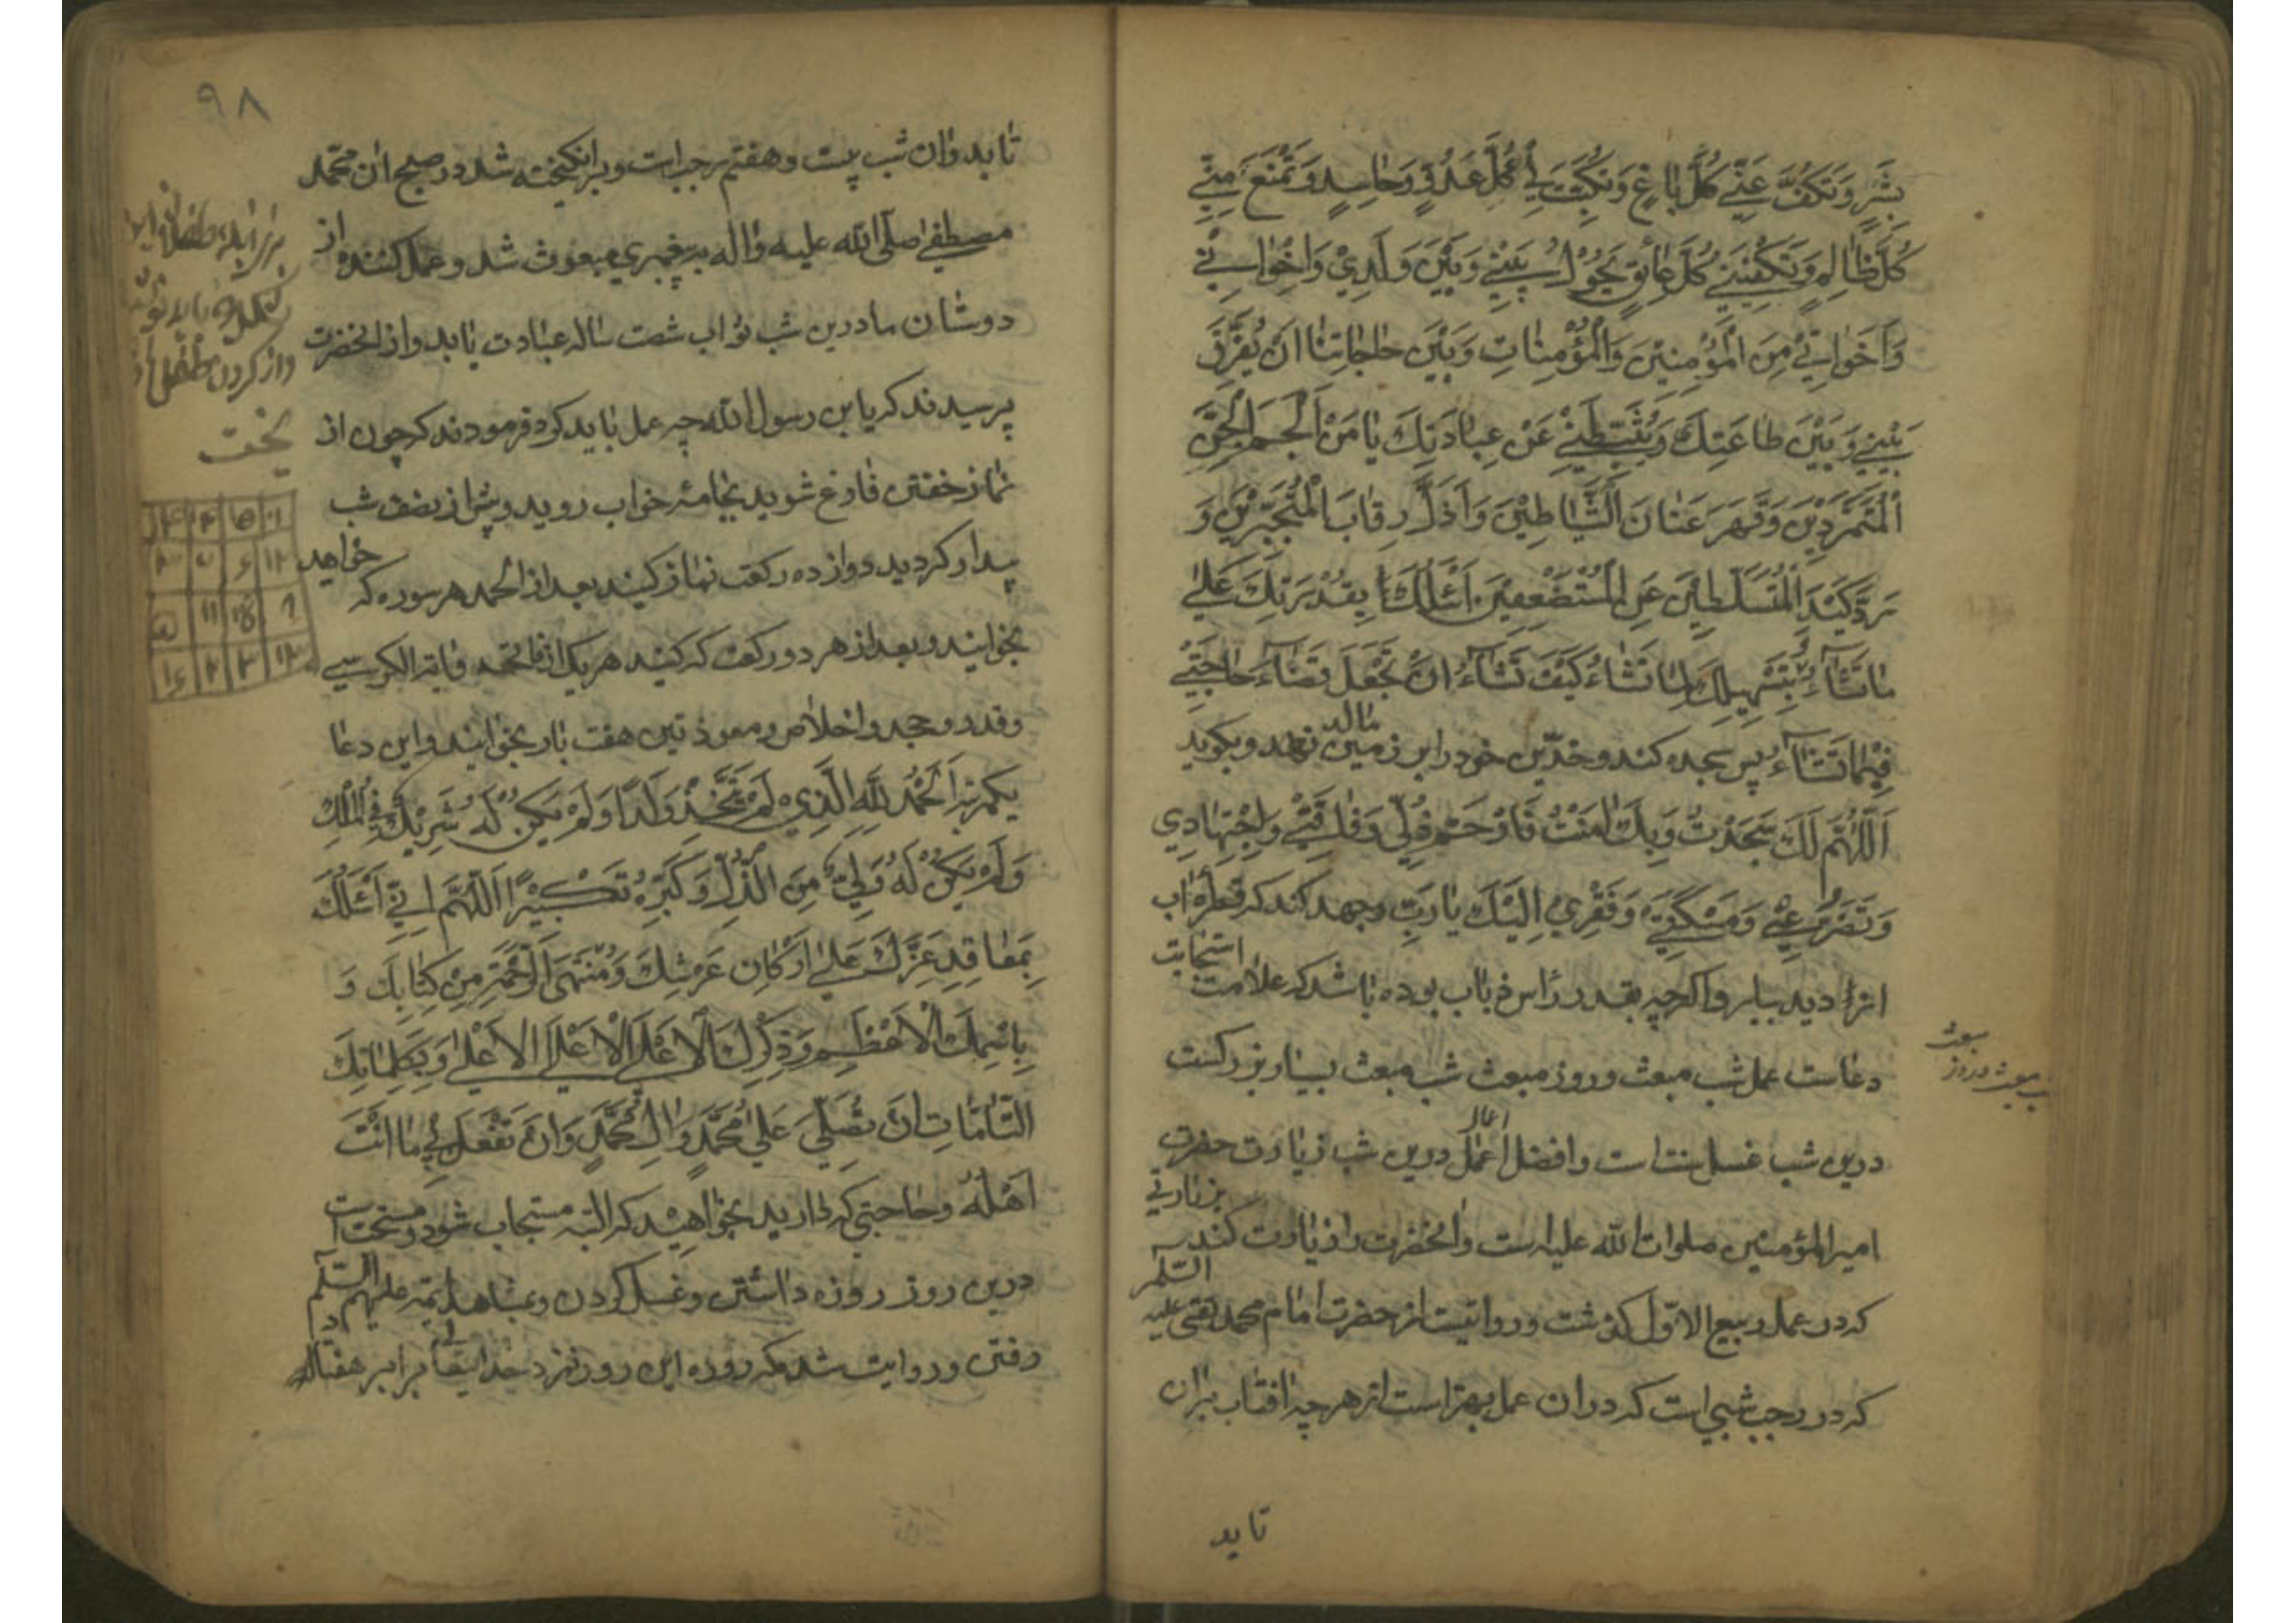 بِشَرٍّ وَتَكُفَّ عَنّي كُلَّ باغٍ وَتَكْبِتَ لي كُلَّ عَدُوٍّ وَحاسِدٍ وَتَمْنَعَ مِنّي
كُلَّ ظالِمٍ وَتَكْفِيَني كُلَّ عائِقٍ يَحُوْلُ بَيْني وَبَيْنَ وَلَدِيْ وَاِخْواني
وَاَخَواتي مِنَ الْمُؤْمِنيْنَ وَالْمُؤْمِناتِ وَبَيْنَ حاجاتِنا اَنْ يُفَرِّقَ
بَيْني وَبَيْنَ طاعَتِكَ وَيُثَبِّطَني عَنْ عِبادَتِكَ يا مَنْ اَلْجَمَ الْجِنَّ
الْمُتَمَرِّدِيْنَ وَقَهَرَ عَتاةَ الشَّياطِيْنَ وَاَذَلَّ رِقابَ الْمُتَجَبِّرِيْنَ وَ
رَدَّ كَيْدَ الْمُتَسَلِّطِيْنَ عَنِ الْمُسْتَضْعَفِيْنَ اَسْئَلُكَ بِقُدْرَتِكَ عَلى
ما تَشاءُ وَتَسْهِيلِكَ لِما تَشاءُ كَيْفَ تَشاءُ اَنْ تَجْعَلَ قَضاءَ حاجَتي
فِيْما تَشاءُ پس سجده کند و خدّین خود را بر زمین مالد و بکوید
اَللّهُمَّ لَكَ سَجَدْتُ وَبِكَ امَنْتُ فَارْحَمْ ذُلّي وَفاقَتي وَاجْتِهادِي
وَتَضَرُّعي وَمَسْكَنَتي وَفَقْرِيْ اِلَيْكَ يا رَبِّ وجهد کند که قطرهٔ اب
از دیده بیاید و اکرچه بقدر رأس ذباب بوده باشد که علامت استجابت
دعاست عمل شب مبعث و روز مبعث شب مبعث بسیار بزرکست
درین شب غسل سنت است و افضل اعمال درین شب زیارت حضرت
امیرالمؤمنین صلوات الله علیه است و انحضرت را زیارت کند بزیارتی
که در عمل ربیع الاوّل کذشت و روایتست از حضرت امام محمد تقی علیه السّلم
که در رجب شبی است که در ان عمل بهتر است از هرچه افتاب بران
تابد
مبعث
شب مبعث و روز
۹۸
تابد و ان شب بیست و هفتم رجب است و برانکیخته شد در صبح ان محمّد
مصطفی صلّی الله علیه واله به پیغمبری مبعوث شد و عمل کننده از
دوستان ما درین شب ثواب شصت ساله عبادت یابد و از انحضرت
پرسیدند که یا بن رسول الله چه عمل باید کرد فرمودند که چون از
نماز خفتن فارغ شوید بجامهٔ خواب روید و پیش از نصف شب
بیدار کردید دوازده رکعت نماز کنید بعد از الحمد هر سوره که خواهید
بخوانید و بعد از هر دو رکعت که کنید هر یک از فاتحه و ایة الکرسی
و قدر و جحد و اخلاص و معوذتین هفت بار بخوانید و این دعا
یکمرتبه اَلْحَمْدُ لِلّهِ الَّذِيْ لَمْ يَتَّخِذْ وَلَدًا وَلَمْ يَكُنْ لَهُ شَرِيْكٌ فِي الْمُلْكِ
وَلَمْ يَكُنْ لَهُ وَلِيٌّ مِنَ الذُّلِّ وَكَبِّرْهُ تَكْبِيْرًا اَللّهُمَّ اِنّي اَسْئَلُكَ
بِمَعاقِدِ عِزِّكَ عَلى اَرْكانِ عَرْشِكَ وَمُنْتَهَى الرَّحْمَةِ مِنْ كِتابِكَ وَ
بِاسْمِكَ الْاَعْظَمِ وَذِكْرِكَ الْاَعْلَى الْاَعْلَى الْاَعْلى وَبِكَلِماتِكَ
التّامّاتِ اَنْ تُصَلِّيَ عَلى مُحَمَّدٍ وَالِ مُحَمَّدٍ وَاَنْ تَفْعَلَ بي ما اَنْتَ
اَهْلُهُ وحاجتی که دارید بخواهید که البته مستجاب شود و مستحب است
درین روز روزه داشتن و غسل کردن و بمشاهد ائمه علیهم السّلم
رفتن و روایت شده که روزه این روز نزد خدایتعالی برابر هفتاد